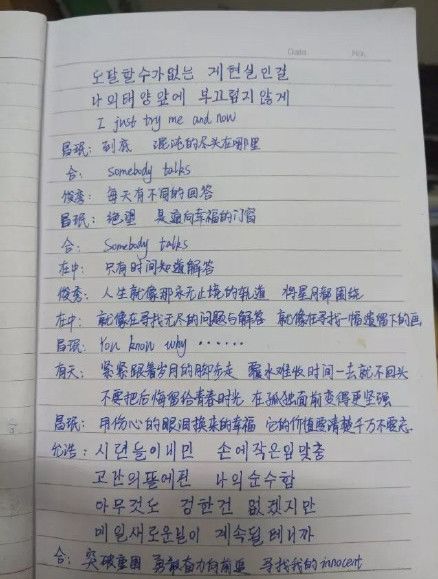 Date. No.
오 달할 수가 없는 게 현실인 걸
나의 태양 앞에 부끄럽지 않게
I just try me and now
昌珉：到底 混沌的尽头在哪里
合： Somebody talks
俊秀：每天有不同的回答
昌珉：绝望 是通向幸福的门窗
合： Somebody talks
在中：只有时间知道解答
俊秀：人生就像那永无止境的轨道 将星月都围绕
在中：就像在寻找无尽的问题与解答 就像在寻找一幅遗留下的画
昌珉：You know why ······
有天：紧紧跟着岁月的脚步走 覆水难收时间一去就不回头
不要把后悔留给青春时光 在孤独面前变得更坚强
昌珉：用伤心的眼泪换来的幸福 它的价值要清楚千万不要忘
允浩：시련들이 내민 손에 작은 입맞춤
고난의 뜰에 핀 나의 순수함
아무것도 정한 건 없겠지만
매일 새로운 일이 계속될 테니까
合：突破重围 勇敢奋力向前奥 寻找我的innocent